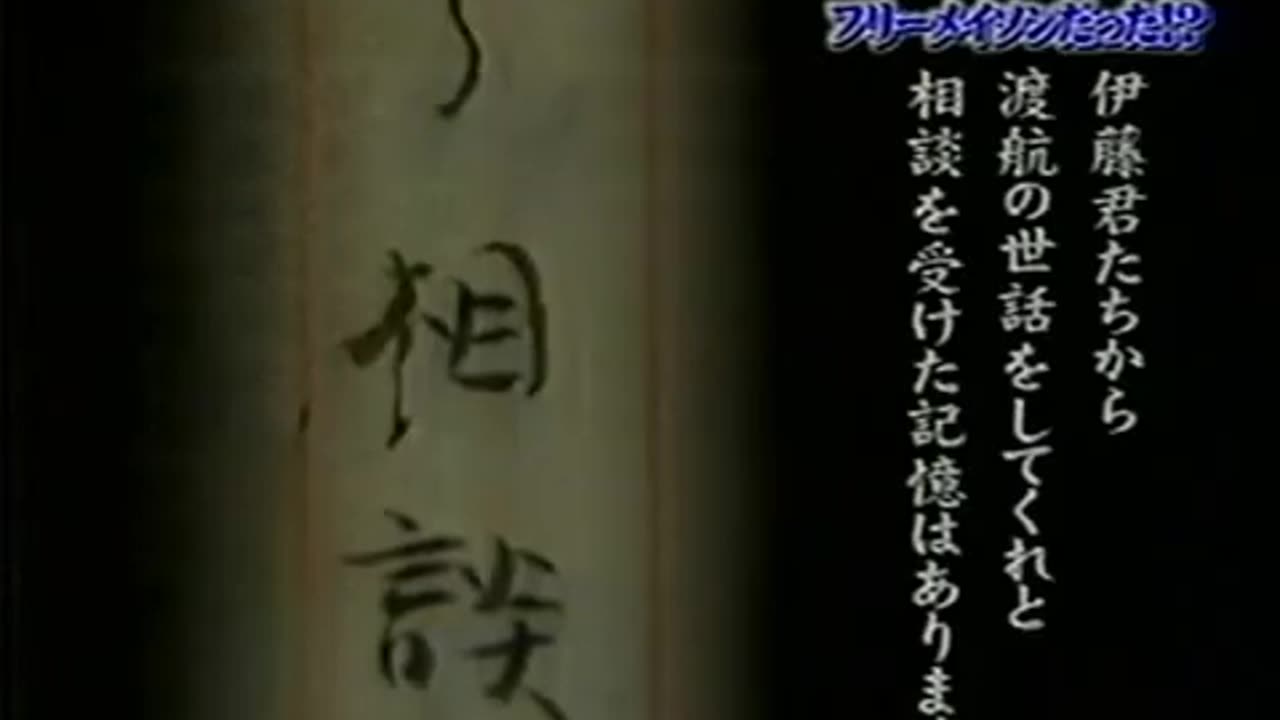 フリーメイソンだった!?
伊藤君たちから
渡航の世話をしてくれと
相談を受けた記憶はありま
相談